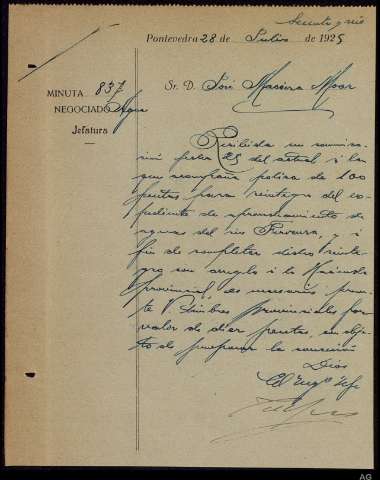 Pontevedra 28 de Julio de 1925
MINUTA 837
NEGOCIADO Agua
Jefatura
Sr. D. José Maceira Moar
Recibida su comunica-
ción fecha 25 del actual i la
que acompaña poliza de 100
pesetas para reintegro del ex-
pediente de aprovechamiento de
agua del rio y á
fin de completar dicho reinte-
gro con arreglo á la Hacienda
provincial, es necesario
V. timbres provinciales por
valor de diez pesetas, en obje-
to de preparar la concesión
Dios
El Ingº Jefe
AG